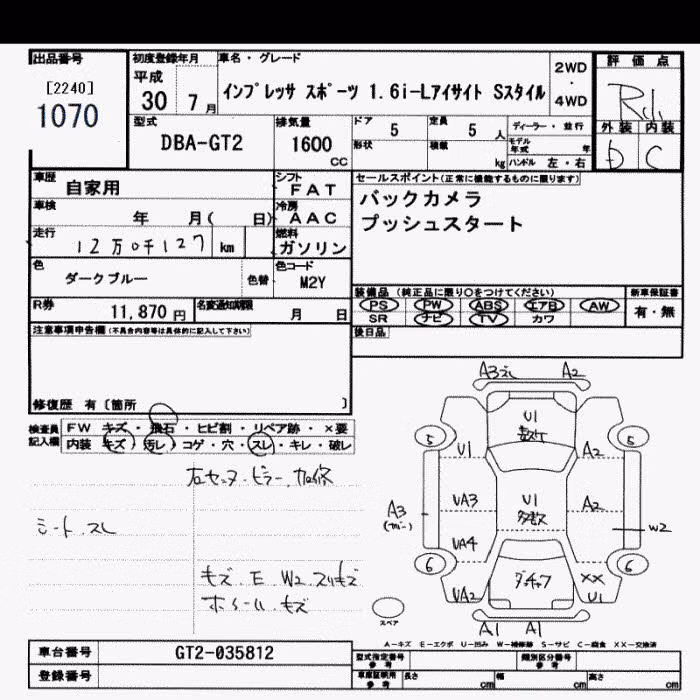 出品番号
[2240]
1070
初度登録年月
平成
30 7月
車名・グレード
インプレッサ スポーツ 1.6i-Lアイサイト Sスタイル
2WD
・
4WD
評価点
外装 内装
C
型式
DBA-GT2
排気量
1600
CC
ドア
5
定員
5 人
形状
積載
kg
ディーラー・並行
モデル年式 年
ハンドル 左・右
車歴
自家用
シフト
FAT
車検
年 月( 日)
冷房
AAC
走行
12万0千127 km
燃料
ガソリン
色
ダークブルー
色替
色コード
M2Y
R券
11,870 円
名変通知期限
月 日
セールスポイント(正常に機能するものに限ります)
バックカメラ
プッシュスタート
装備品 (純正品に限り○をつけてください)
新車保証書
PS PW ABS エアB AW
有・無
SR ナビ TV カワ
後日品
注意事項申告欄(不具合内容等は具体的に記入して下さい)
修復歴 有〔箇所 〕
検査員記入欄
FW キズ・飛石・ヒビ割・リペア跡・×要
内装 キズ・汚レ・コゲ・穴・スレ・キレ・破レ
右センターピラー、加修
シート、スレ
キズ、E、W2、スリキズ
ホイール、キズ
A2
U1
5
5
U1
A2
VA3
U1
A2
A3
W2
VA4
6
6
XX
VA2
U1
スペア
A1
A1
A-キズ E-エクボ U-凹み W-補修跡 S-サビ C-腐食 XX-交換済
車台番号
GT2-035812
登録番号
型式指定番号
参考
類別区分番号
参考
車庫証明用
参考
長さ cm
幅 cm
高さ cm